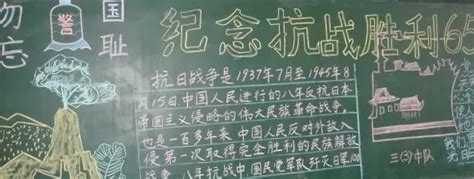 勿忘国耻
警
纪念抗战胜利6
抗日战争是1937年7月至1945年8
月15日中国人民进行的八年反抗日本
帝国主义侵略的伟大民族革命战争。
也是一百多年来中国人民反对外敌入
侵第一次取得完全胜利的民族解放
战争。八年抗战中国民党军队歼灭日军100
三(3)中队